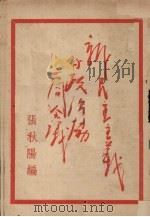 新民主主義
政治協
商會議
張秋陽編